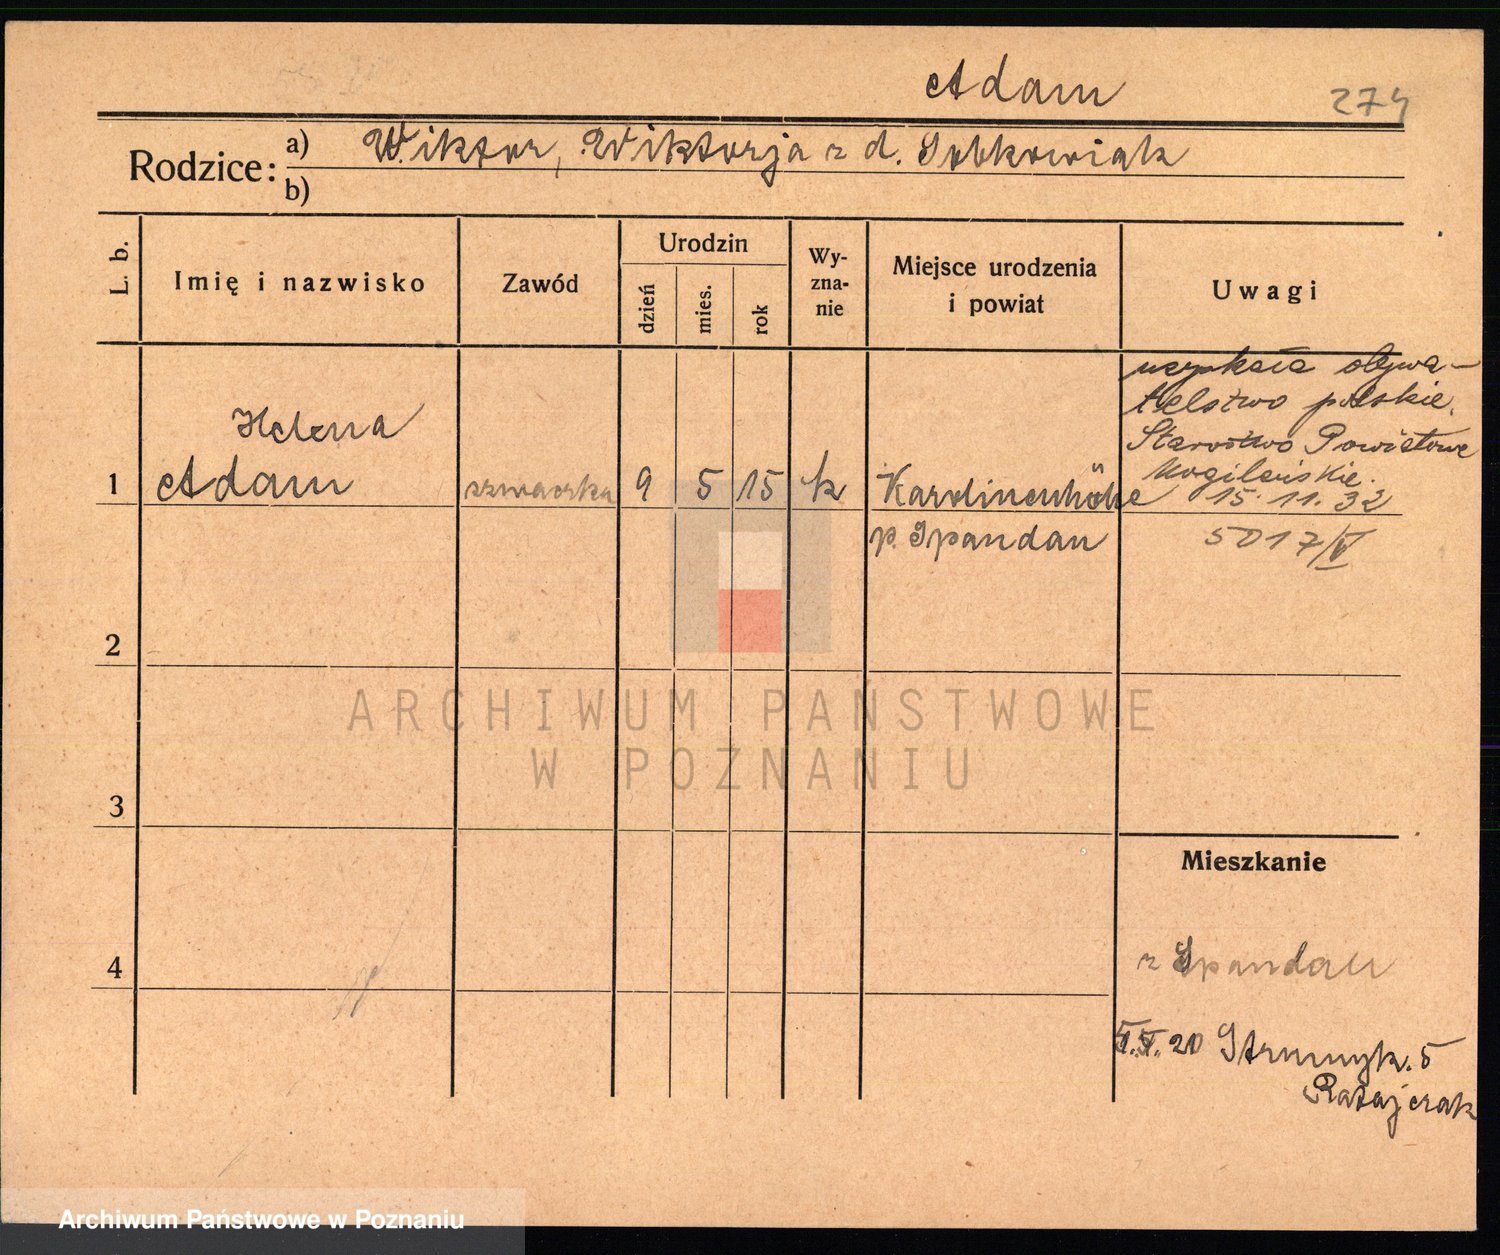 Adam
274
Rodzice:
a) Wiktor, Wiktorja z d. Sobkowiak
b)
L. b.
Imię i nazwisko
Zawód
Urodzin
dzień
mies.
rok
Wy-
zna-
nie
Miejsce urodzenia
i powiat
Uwagi
uzyskała obywa-
telstwo polskie.
Starostwo Powiatowe
Mogileńskie.
15.11.32
5017/V
Helena
1 Adam szwaczka 9 5 15 k Karolinenhöhe
p. Spandau
2
3
4
ARCHIWUM PAŃSTWOWE
W POZNANIU
Mieszkanie
z Spandau
20 Strumyk. 5
Ratajczak
Archiwum Państwowe w Poznaniu